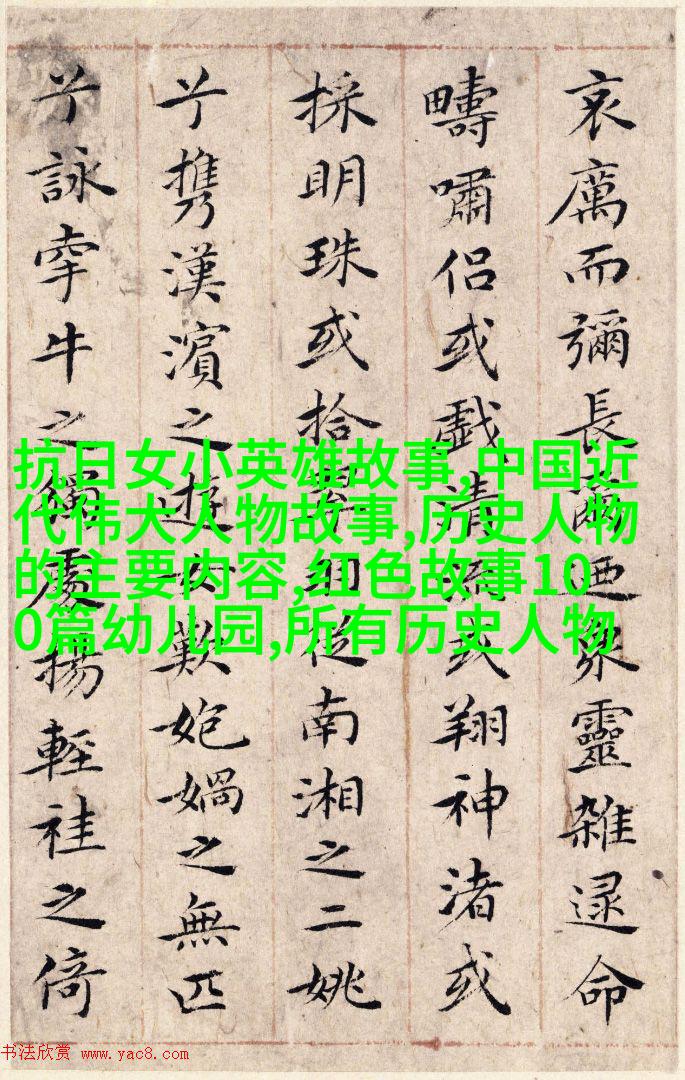 哀厲而彌長爾迺眾靈雜遝命
疇嘯侶或戲清流或翔神渚或
採明珠或拾翠羽從南湘之二姚
兮攜漢濱之遊女歎媧之無匹
兮詠牽牛之獨處揚輕袿之倚
抗日女小英雄故事,中国近
代伟大人物故事,历史人物
的主要内容,红色故事10
0篇幼儿园,所有历史人物
书法欣赏 www.yac8.com